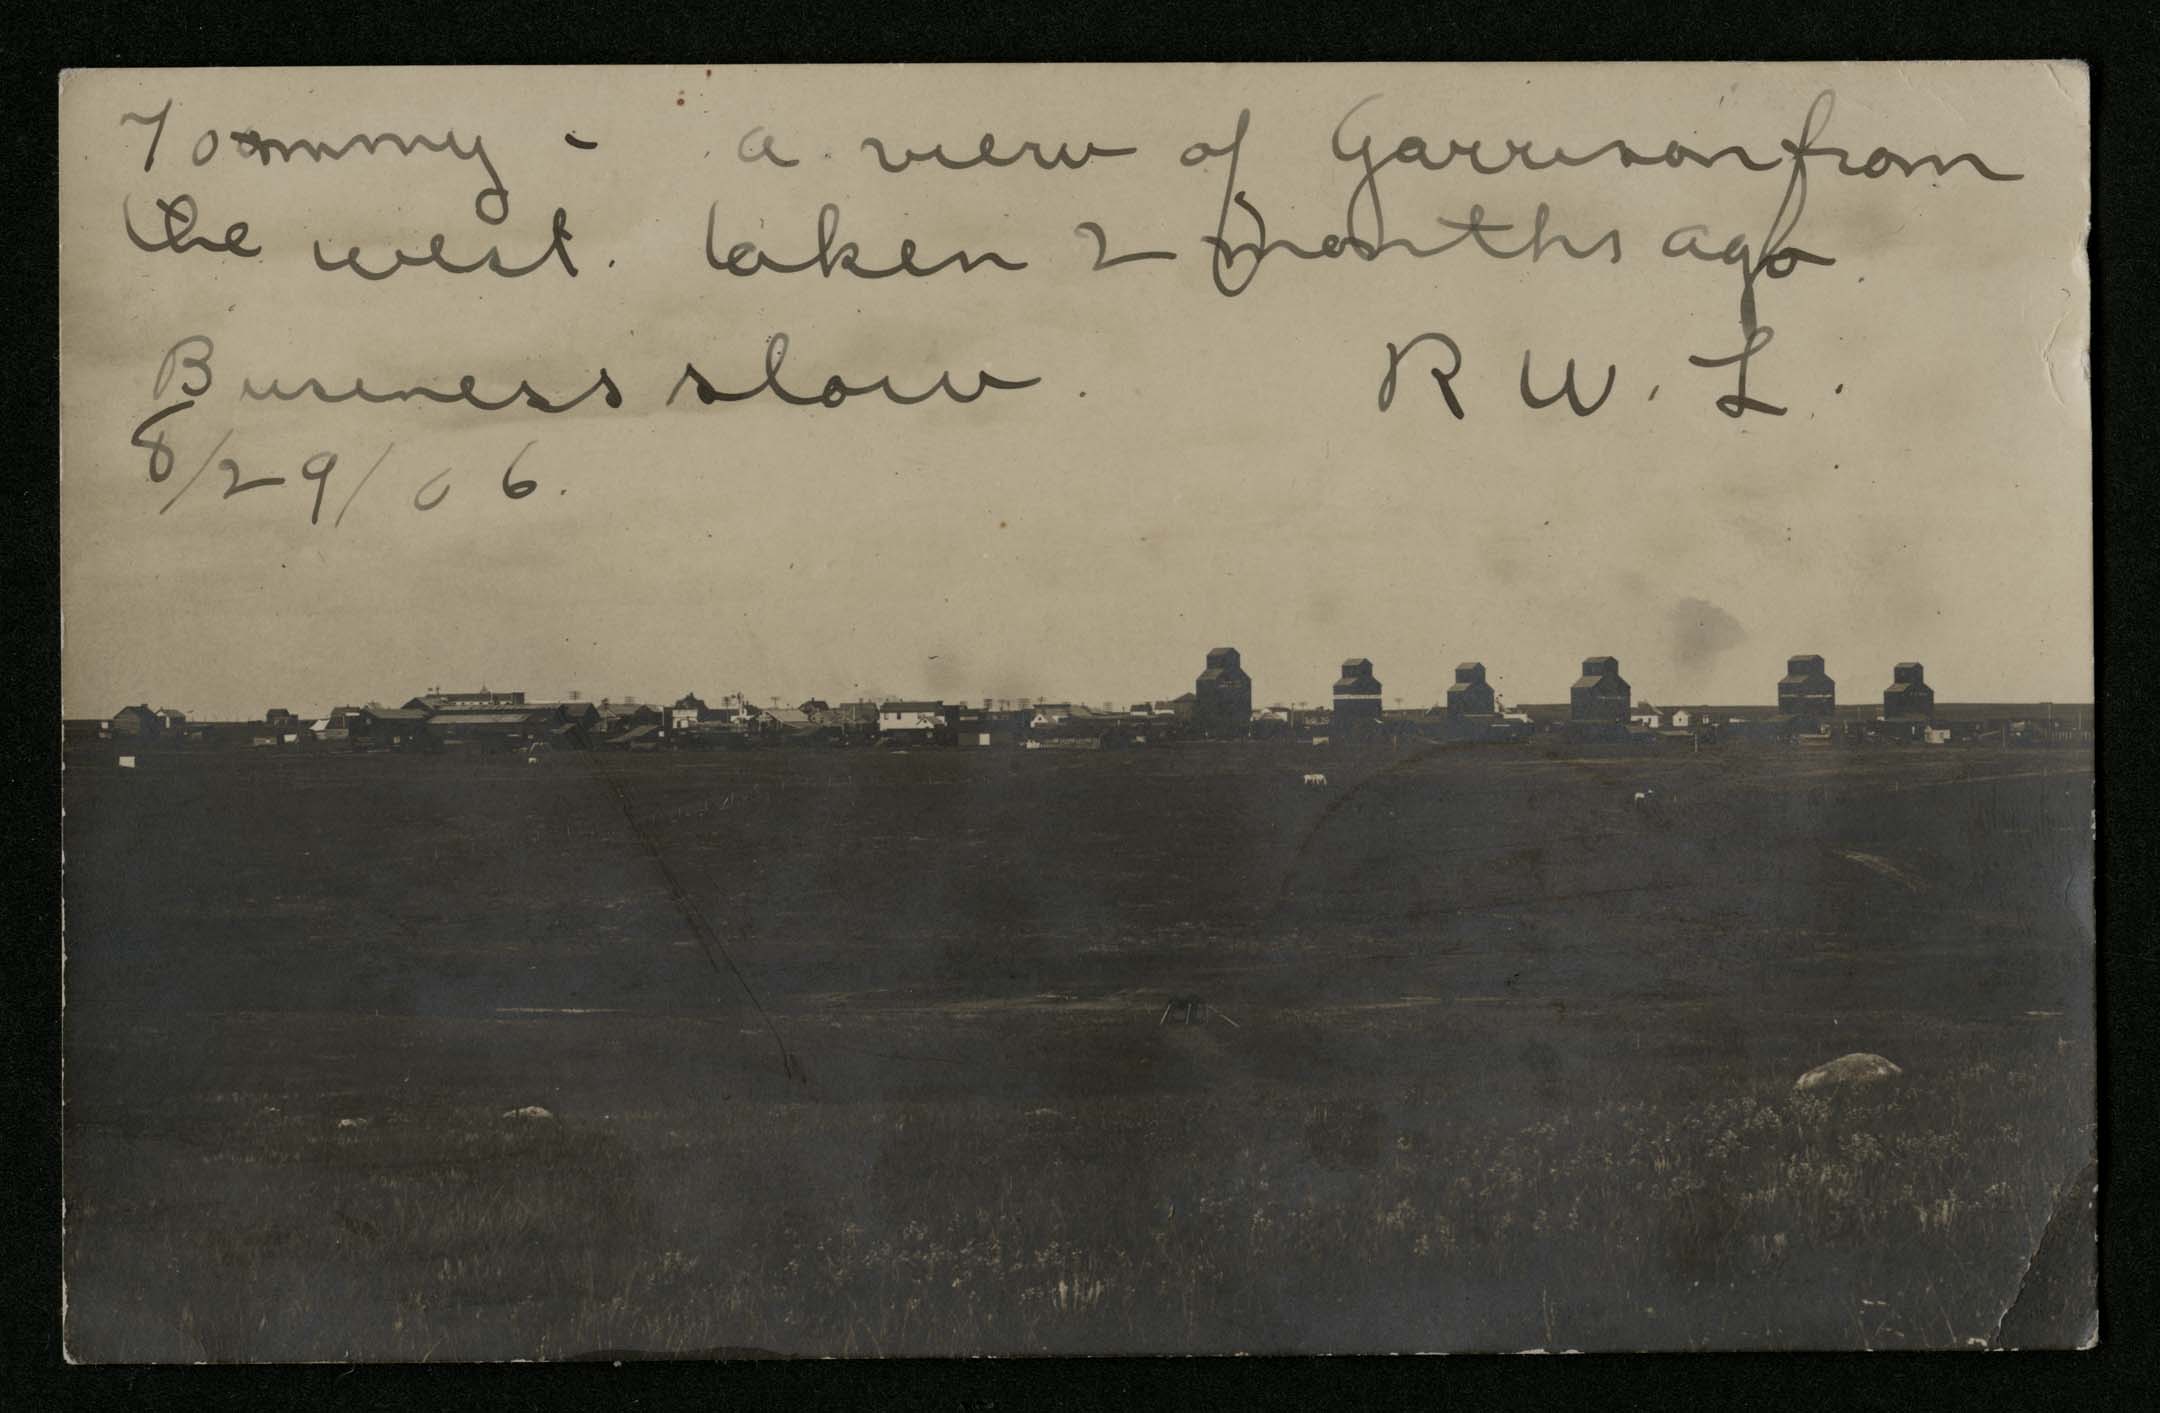 Tommy - a view of Garrison from
the west. taken 2 months ago.
Business slow. R W. L.
8/29/06.